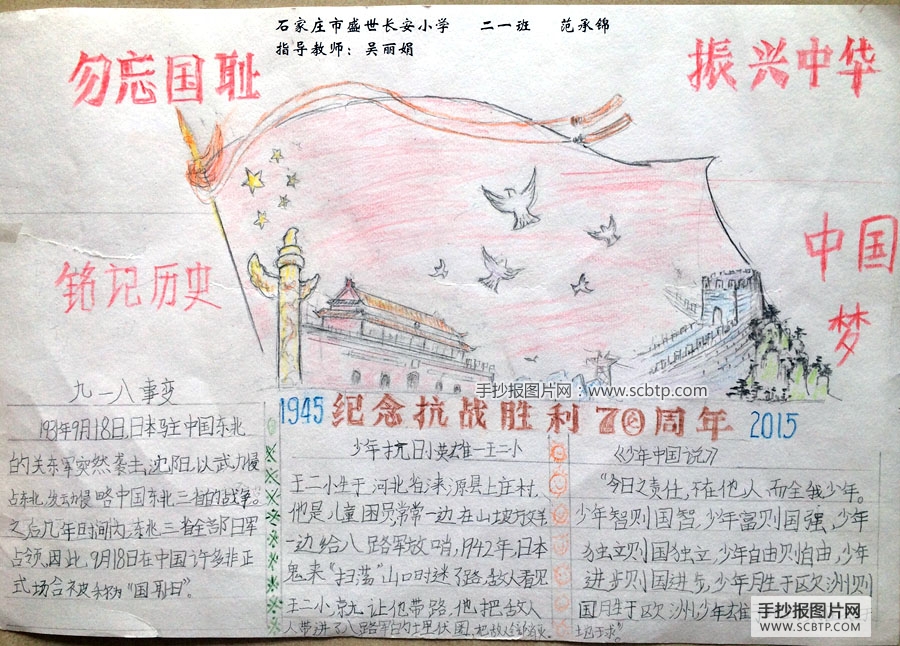 石家庄市盛世长安小学 二一班 范承锦
指导教师：吴丽娟
勿忘国耻
振兴中华
铭记历史
中国
梦
手抄报图片网：www.scbtp.com
1945 纪念抗战胜利70周年 2015
九一八事变
1931年9月18日,日本驻中国东北
的关东军突然袭击沈阳,以武力侵
占东北,发动侵略中国东北三省的战争。
之后几年时间内,东北三省全部日军
占领,因此,9月18日在中国许多非正
式场合被称为“国耻日”。
少年抗日小英雄—王二小
王二小生于河北省涞源县上庄村,
他是儿童团员常常一边在山坡放羊
一边给八路军放哨,1942年,日本
鬼来“扫荡”山口时迷了路,敌人看见
王二小京尤让他带路,他把敌人
人带进了八路军的埋伏圈,把敌人
《少年中国说》
“今日之责任,不在他人,而全我少年。
少年智则国智,少年富则国强,少年
独立则国独立,少年自由则自由,少年
进步则国进步,少年胜于欧洲则
国胜于欧洲,少年雄
手抄报图片网
WWW.SCBTP.COM